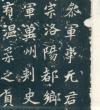 參軍事元君
宗洛陽都鄉
軍冀州刺史
有溫柔之貞